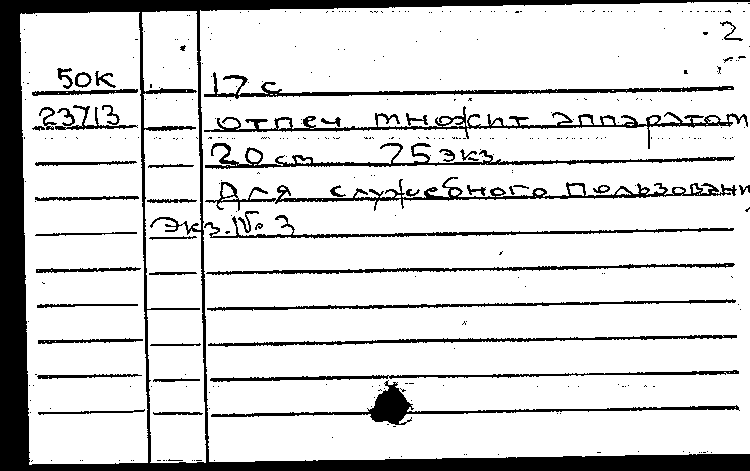 2
50к 17 с
23713 отпеч множит аппаратом
20 см 75 экз.
Для служебного пользовани
Экз. № 3